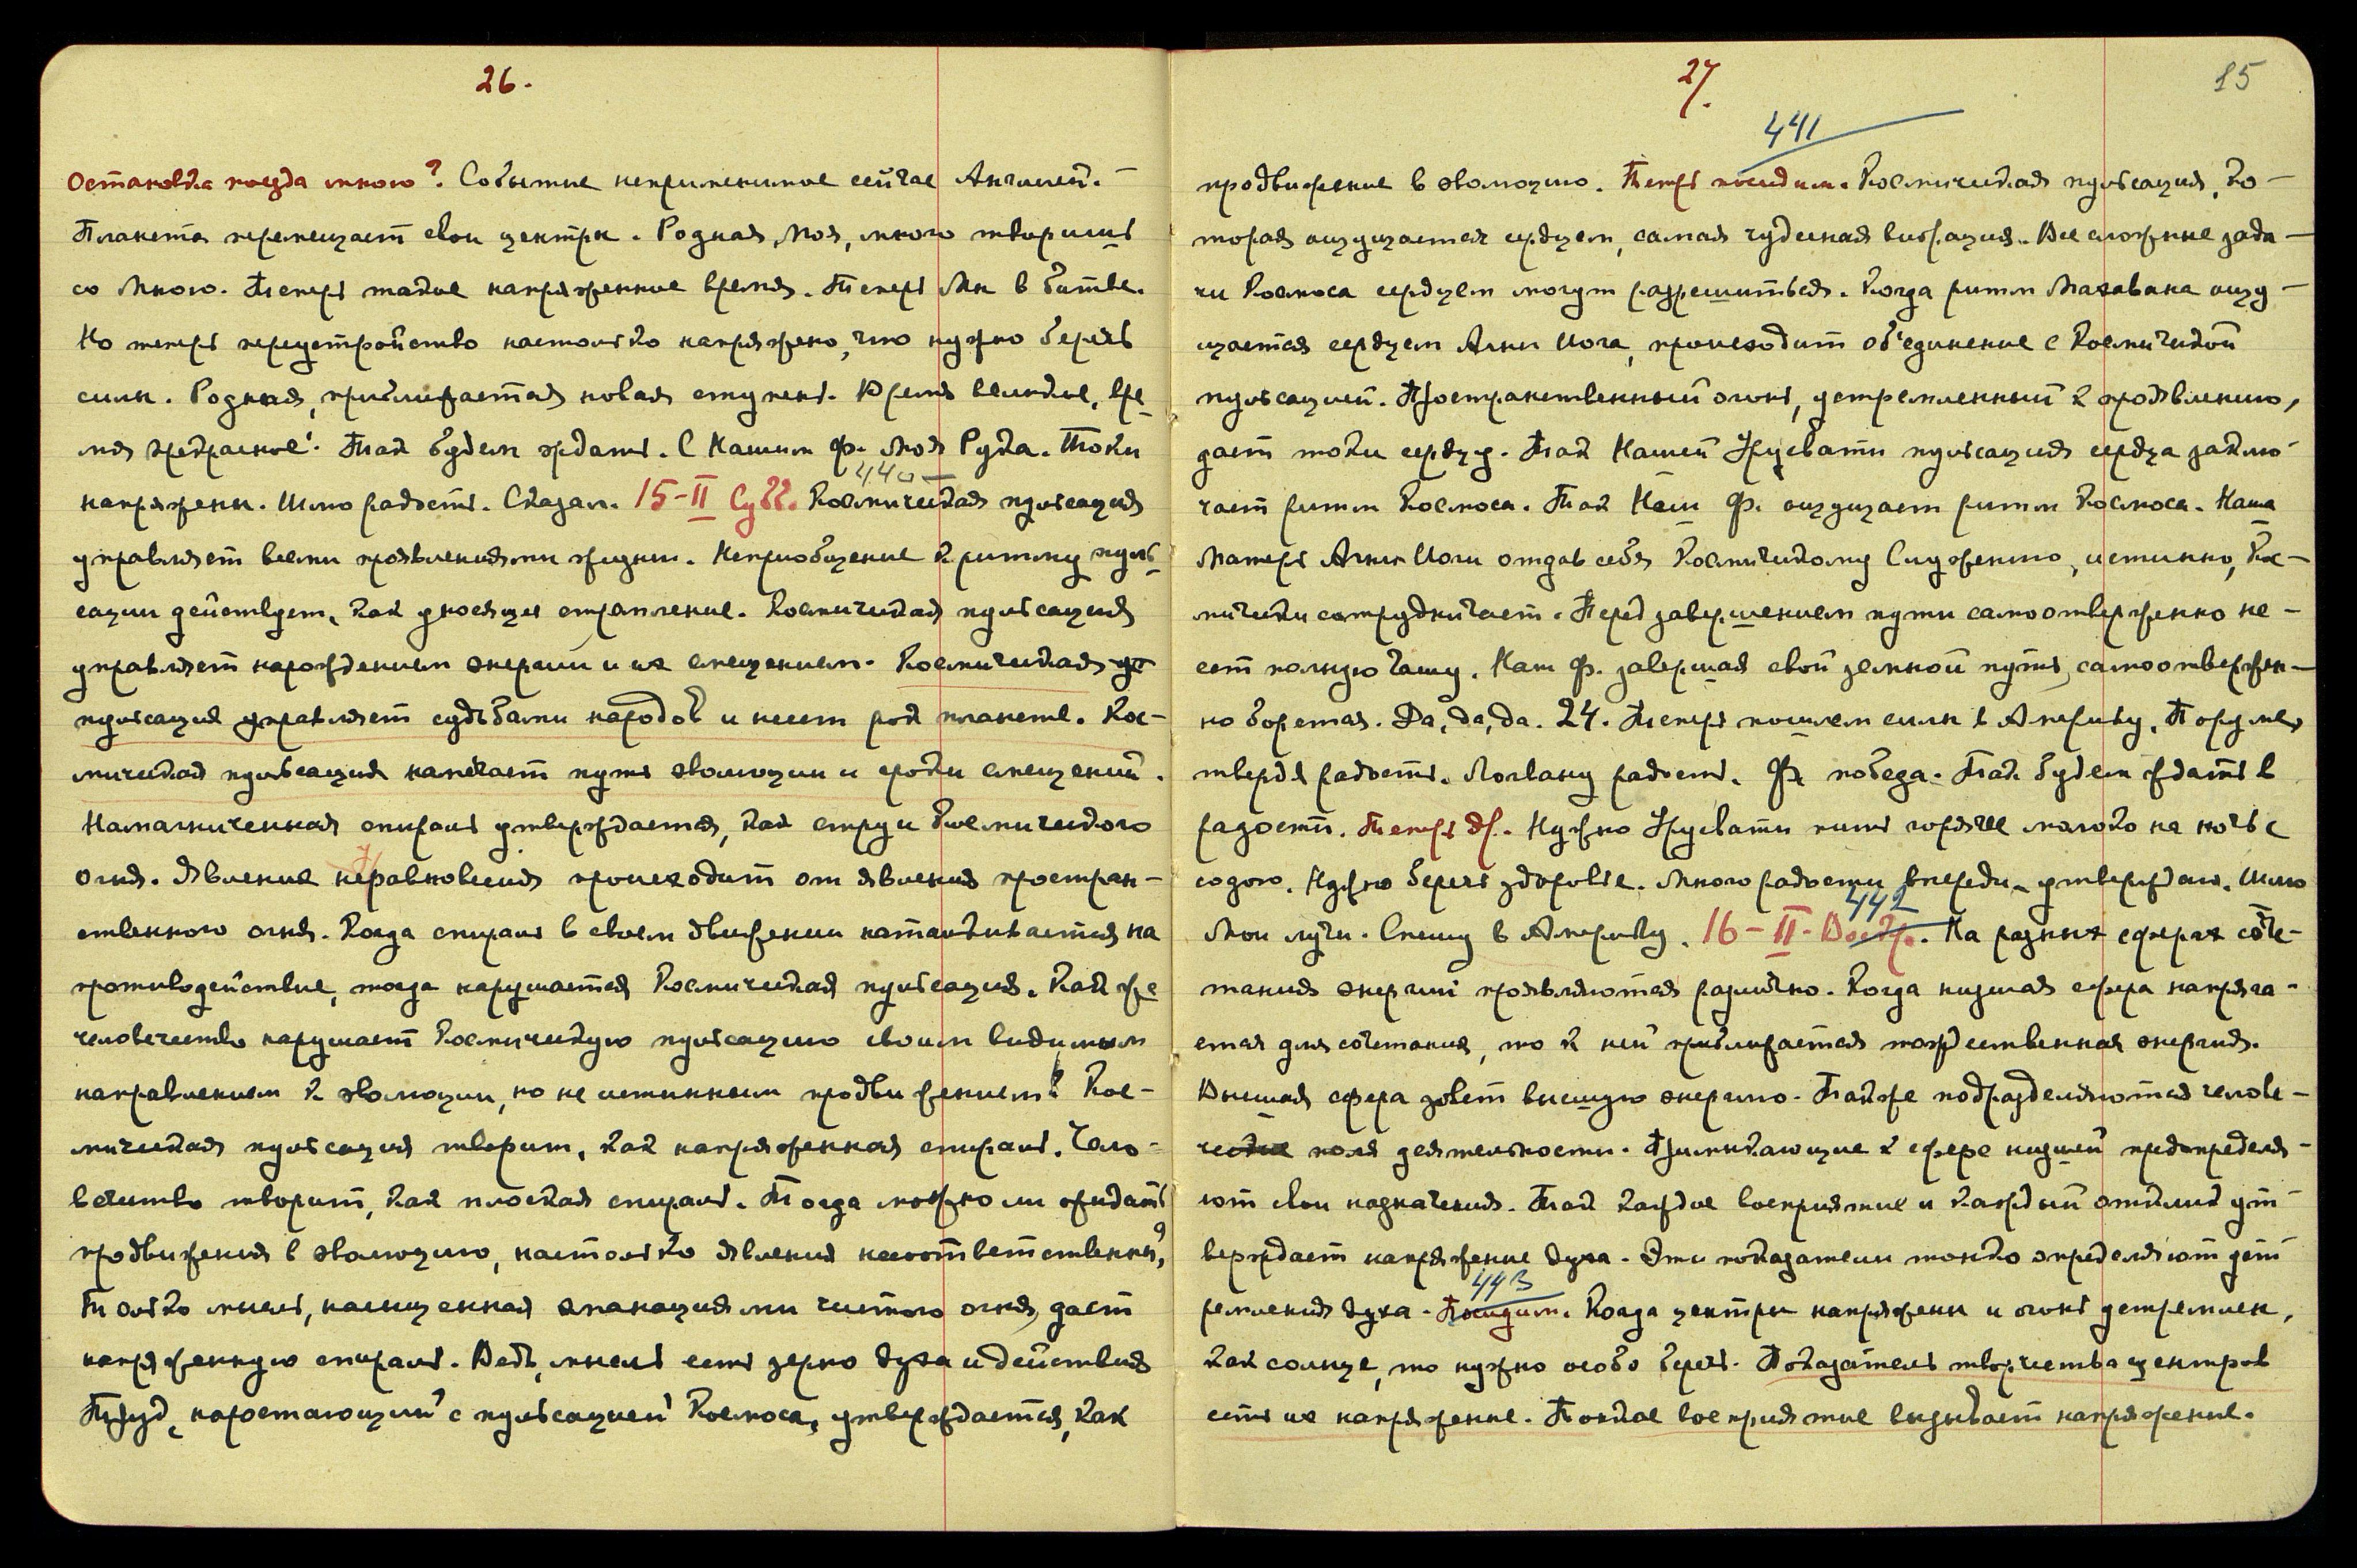 26.
Остановка поезда мною? Событие неприменимое сейчас Англией.
Планета перемещает свои центры. Родная, Моя, много творишь
со Мною. Теперь такое напряженное время. Теперь Мы в битве.
Но теперь переустройство настолько напряжено, что нужно беречь
силы. Родная, приближается новая ступень. Время великое, вре-
мя прекрасное! Так будем ждать. С Нашим Ф. Моя Рука. Токи
440
напряжены. Шлю радость. Сказал. 15-II Субб. Космическая пульсация
управляет всеми проявлениями жизни. Неприобщение к ритму пуль-
сации действует, как уносящее стремление. Космическая пульсация
управляет нарождением энергий и их смещением. Космическая
пульсация управляет судьбами народов и несет рок планете. Кос-
мическая пульсация намечает путь эволюции и сроки смещений.
Намагниченная спираль утверждается, как струи Космического
огня. Явление неравновесия происходит от явления простран-
ственного огня. Когда спираль в своем движении наталкивается на
противодействие, тогда нарушается Космическая пульсация. Как же
человечество нарушает Космическую пульсацию своим видимым
направлением к эволюции, но не истинным продвижением! Кос-
мическая пульсация творит, как напряженная спираль. Чело-
вечество творит, как плоская спираль. Тогда можно ли ожидать
продвижения в эволюцию, настолько явления несоответственны?
Только мысль, насыщенная эманациями чистого огня, дает
напряженную спираль. Ведь, мысль есть зерно духа и действия
Труд, наростающий с пульсацией Космоса, утверждается, как
27.
85
441
продвижение в эволюцию. Теперь посидим. Космическая пульсация, ко-
торая ощущается сердцем, самая чудесная вибрация. Все сложные зада-
чи Космоса сердцем могут разрешиться. Когда ритм Магавана ощу-
щается сердцем Агни Йога, происходит об'единение с Космической
пульсацией. Пространственный огонь, устремленный к проявлению,
дает токи сердцу. Так Нашей Урусвати пульсация сердца заклю-
чает ритм Космоса. Так Наш Ф. ощущает ритм Космоса. Наша
Матерь Агни Йоги отдав себя Космическому Служению, истинно, Кос-
мически сотрудничает. Перед завершением пути самоотверженно не-
сет полную Чашу. Наш Ф. завершая свой земной путь, самоотвержен-
но борется. Да, да, да. 24. Теперь пошлем силы в Америку. Порума,
твердя радость. Логвану радость. Ф. победа. Так будем ждать в
радости. Теперь др. Нужно Урусвати пить горячее молоко на ночь с
содою. Нужно беречь здоровье. Много радости впереди, утверждаю. Шлю
442
Мои лучи. Спешу в Америку. 16-II-Воскр. На разных сферах соче-
тания энергий проявляются различно. Когда низшая сфера напряга-
ется для сочетания, то к ней приближается тождественная энергия.
Высшая сфера зовет высшую энергию. Также подразделяются челове-
ческие поля деятельности. Примыкающие к сфере низшей предопределя-
ют свои назначения. Так каждое восприятие и каждый отклик ут-
верждает напряжение духа. Эти показатели тонко определяют уст-
443
ремления духа. Посидим. Когда центры напряжены и огонь устремлен,
как солнце, то нужно особо беречь. Показатель творчества центров
есть их напряжение. Тонкое восприятие вызывает напряжение.